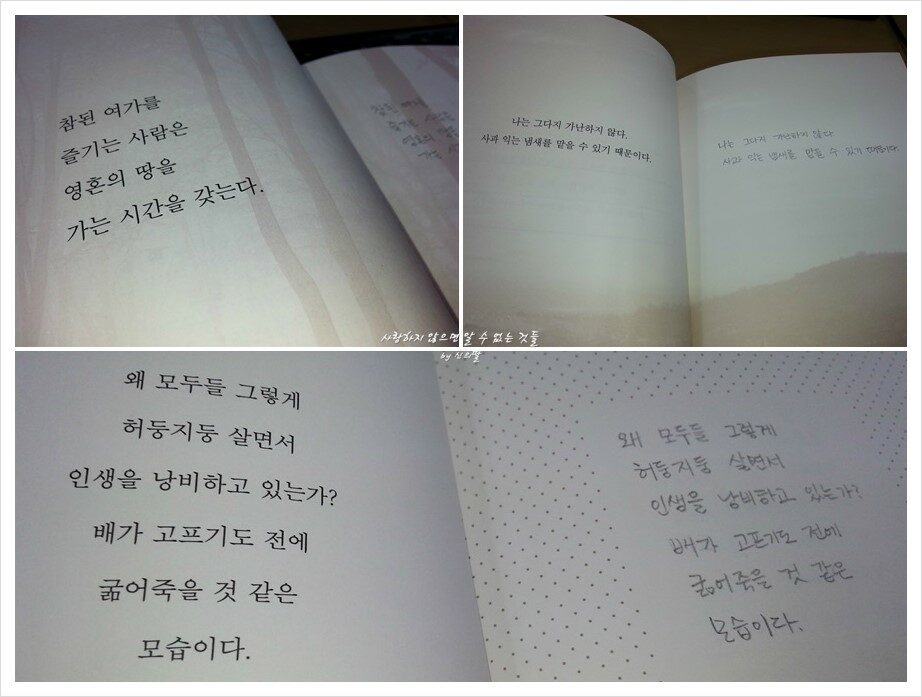 참된 여가를
즐기는 사람은
영혼의 땅을
가는 시간을 갖는다.
참된 여가
즐기는 사람은
영혼의 땅
가는 시
나는 그다지 가난하지 않다.
사과 익는 냄새를 맡을 수 있기 때문이다.
나는 그다지 가난하지 않다
사과 익는 냄새를 맡을 수 있기 때문이다.
사랑하지 않으면 알 수 없는 것들
by 신의딸
왜 모두들 그렇게
허둥지둥 살면서
인생을 낭비하고 있는가?
배가 고프기도 전에
굶어죽을 것 같은
모습이다.
왜 모두들 그렇게
허둥지둥 살면서
인생을 낭비하고 있는가?
배가 고프기도 전에
굶어죽을 것 같은
모습이다.